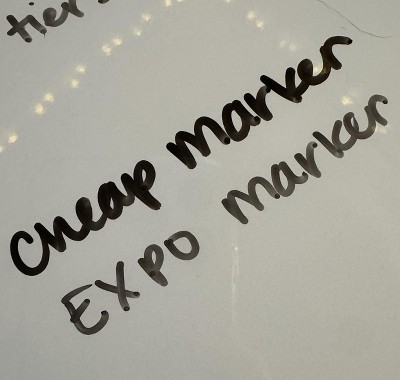 tier
Cheap marker
EXPO marker